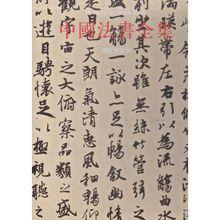 中國法書全集
湍暎帶左右引以為流觴曲水
列坐其次雖無絲竹管弦之
盛一觴一詠亦足以暢敘幽情
是日也天朗氣清惠風和暢仰
觀宇宙之大俯察品類之盛
所以遊目騁懷足以極視聽之